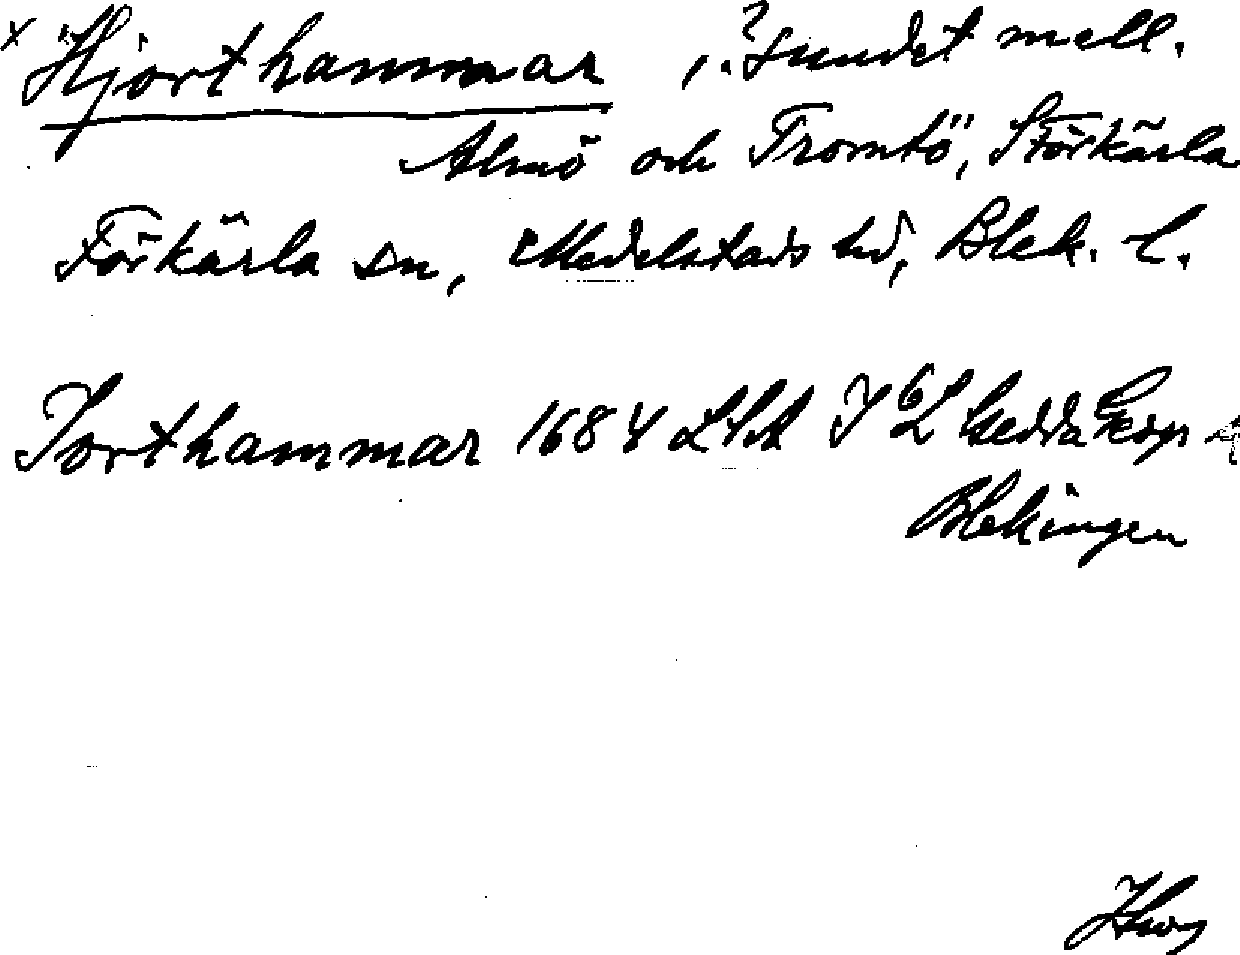 x "Hjorthammar, ? sundet mell.
Almö och Tromtö", St Förkärla
Förkärla sn, Medelstads hd, Blek. l.
Jorthammar 1684 LSA Gedda
Blekingen